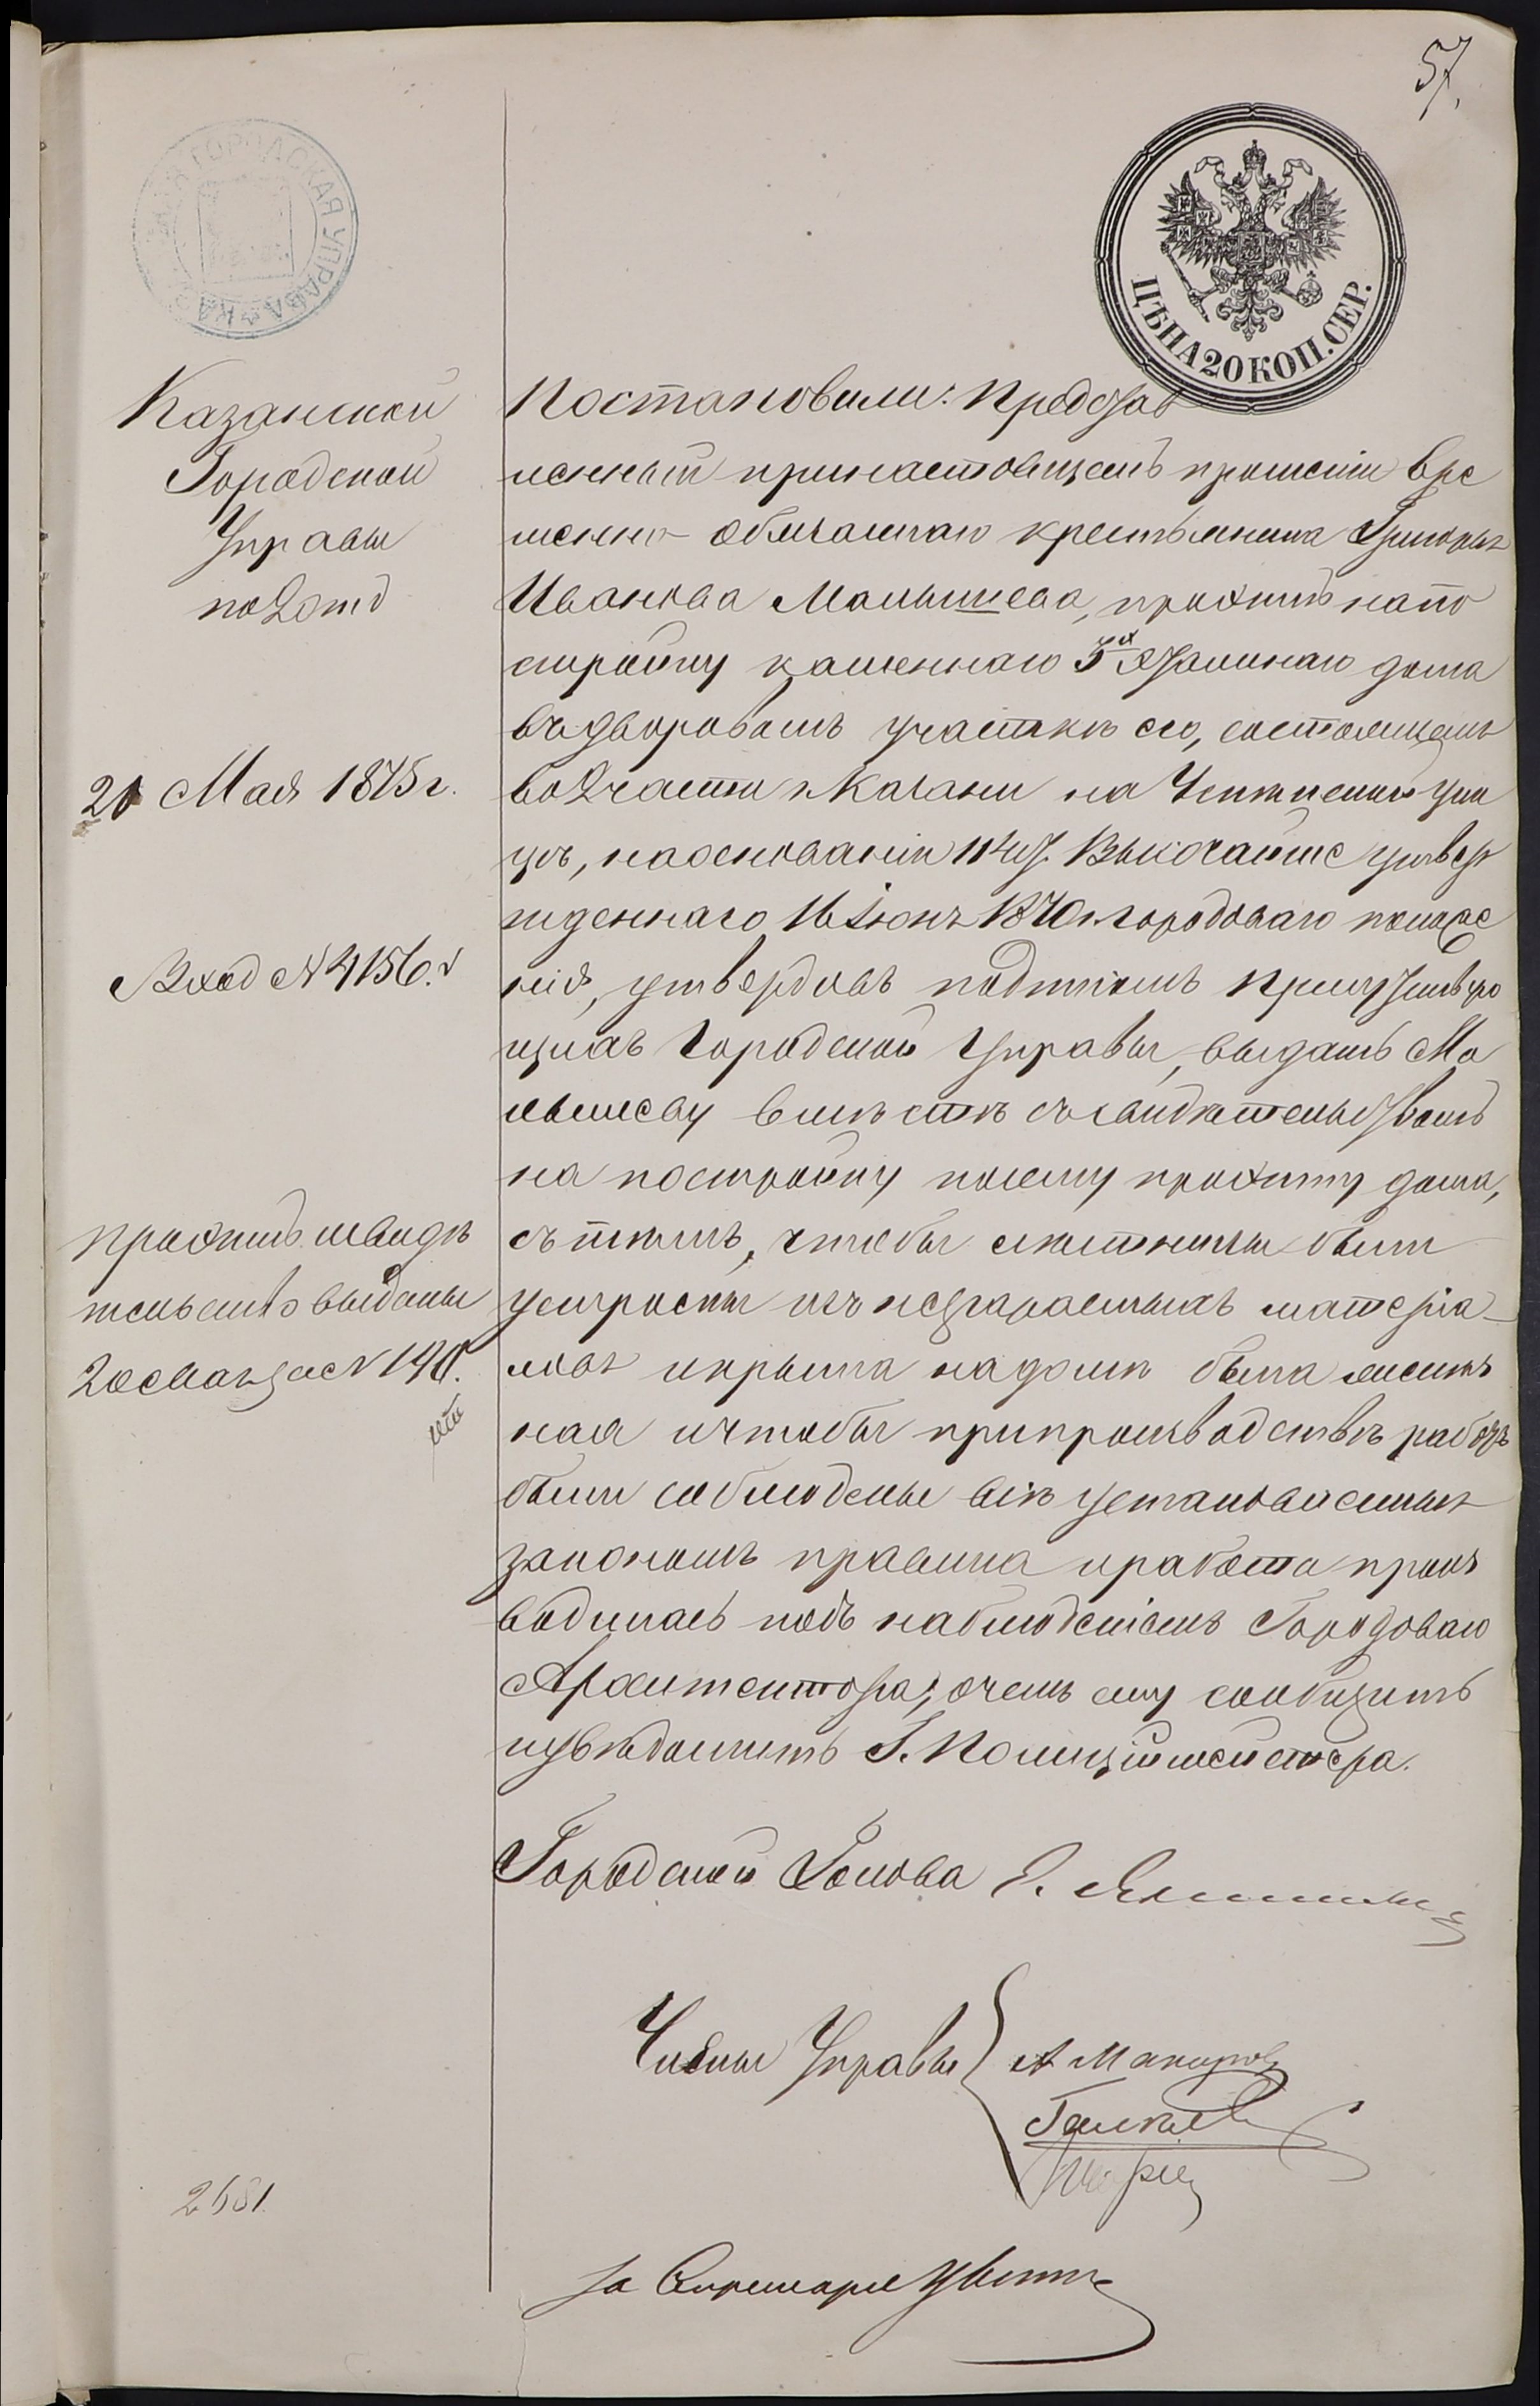 57.
ГОРОДСКАЯ УПРАВА
ЦѢНА 20 КОП. СЕР.
Казанской
Городской
Управы
по 2 отд
20 Мая 1875 г.
Вход № 4156.
проэктъ и свидѣ
тельство выданы
20 с Мая за № 190.
2681.
Постановили: Представ
ленный при настоящемъ прошеніи вре
менно-обязаннаго крестьянина Григорья
Иванова Малышева, проэктъ на по
стройку каменнаго 3х этажнаго дома
въ дворовомъ участкѣ его, состоящемъ
во 2 части г. Казани на ули
цѣ, на основаніи 114 ст. Высочайше утвер
жденнаго 16 Іюня 1870 г. городоваго положе
нія, утвердивъ подписомъ Присутствую
щихъ Городской Управы, выдать Ма
лышеву вмѣстѣ съ свидѣтельствомъ
на постройку по сему проэкту дома,
съ тѣмъ, чтобы лѣстницы были
устроены изъ несгараемыхъ матеріа-
ловъ и крыша на домѣ была желѣз
ная и чтобы при производствѣ работъ
были соблюдены всѣ установленныя
закономъ правила и работа произ
водилась подъ наблюденіемъ Городоваго
Архитектора, о чемъ ему сообщить
и увѣдомить Г. Полиціймейстера.
Городской Голова Э. Янишевскій
Члены Управы
За Секретаря